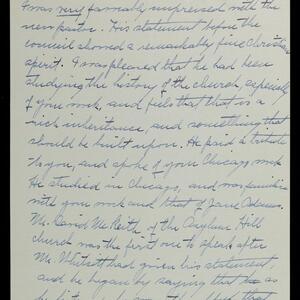 I was very favorably impressed with the
new pastor. His statement before the
council showed a remarkably fine Christian
spirit. I was pleased that he had been
studying the history of the church, especially
of your work, and feels that that is a
rich inheritance, and something that
should be built upon. He paid a tribute
to you, and spoke of your Chicago work.
He studied in Chicago, and was familiar
with your work and that of Jane Adams.
Mr. David McKeith of the Asylum Hill
church was the first one to speak after
Mr. had given his statement,
and he began by saying that as